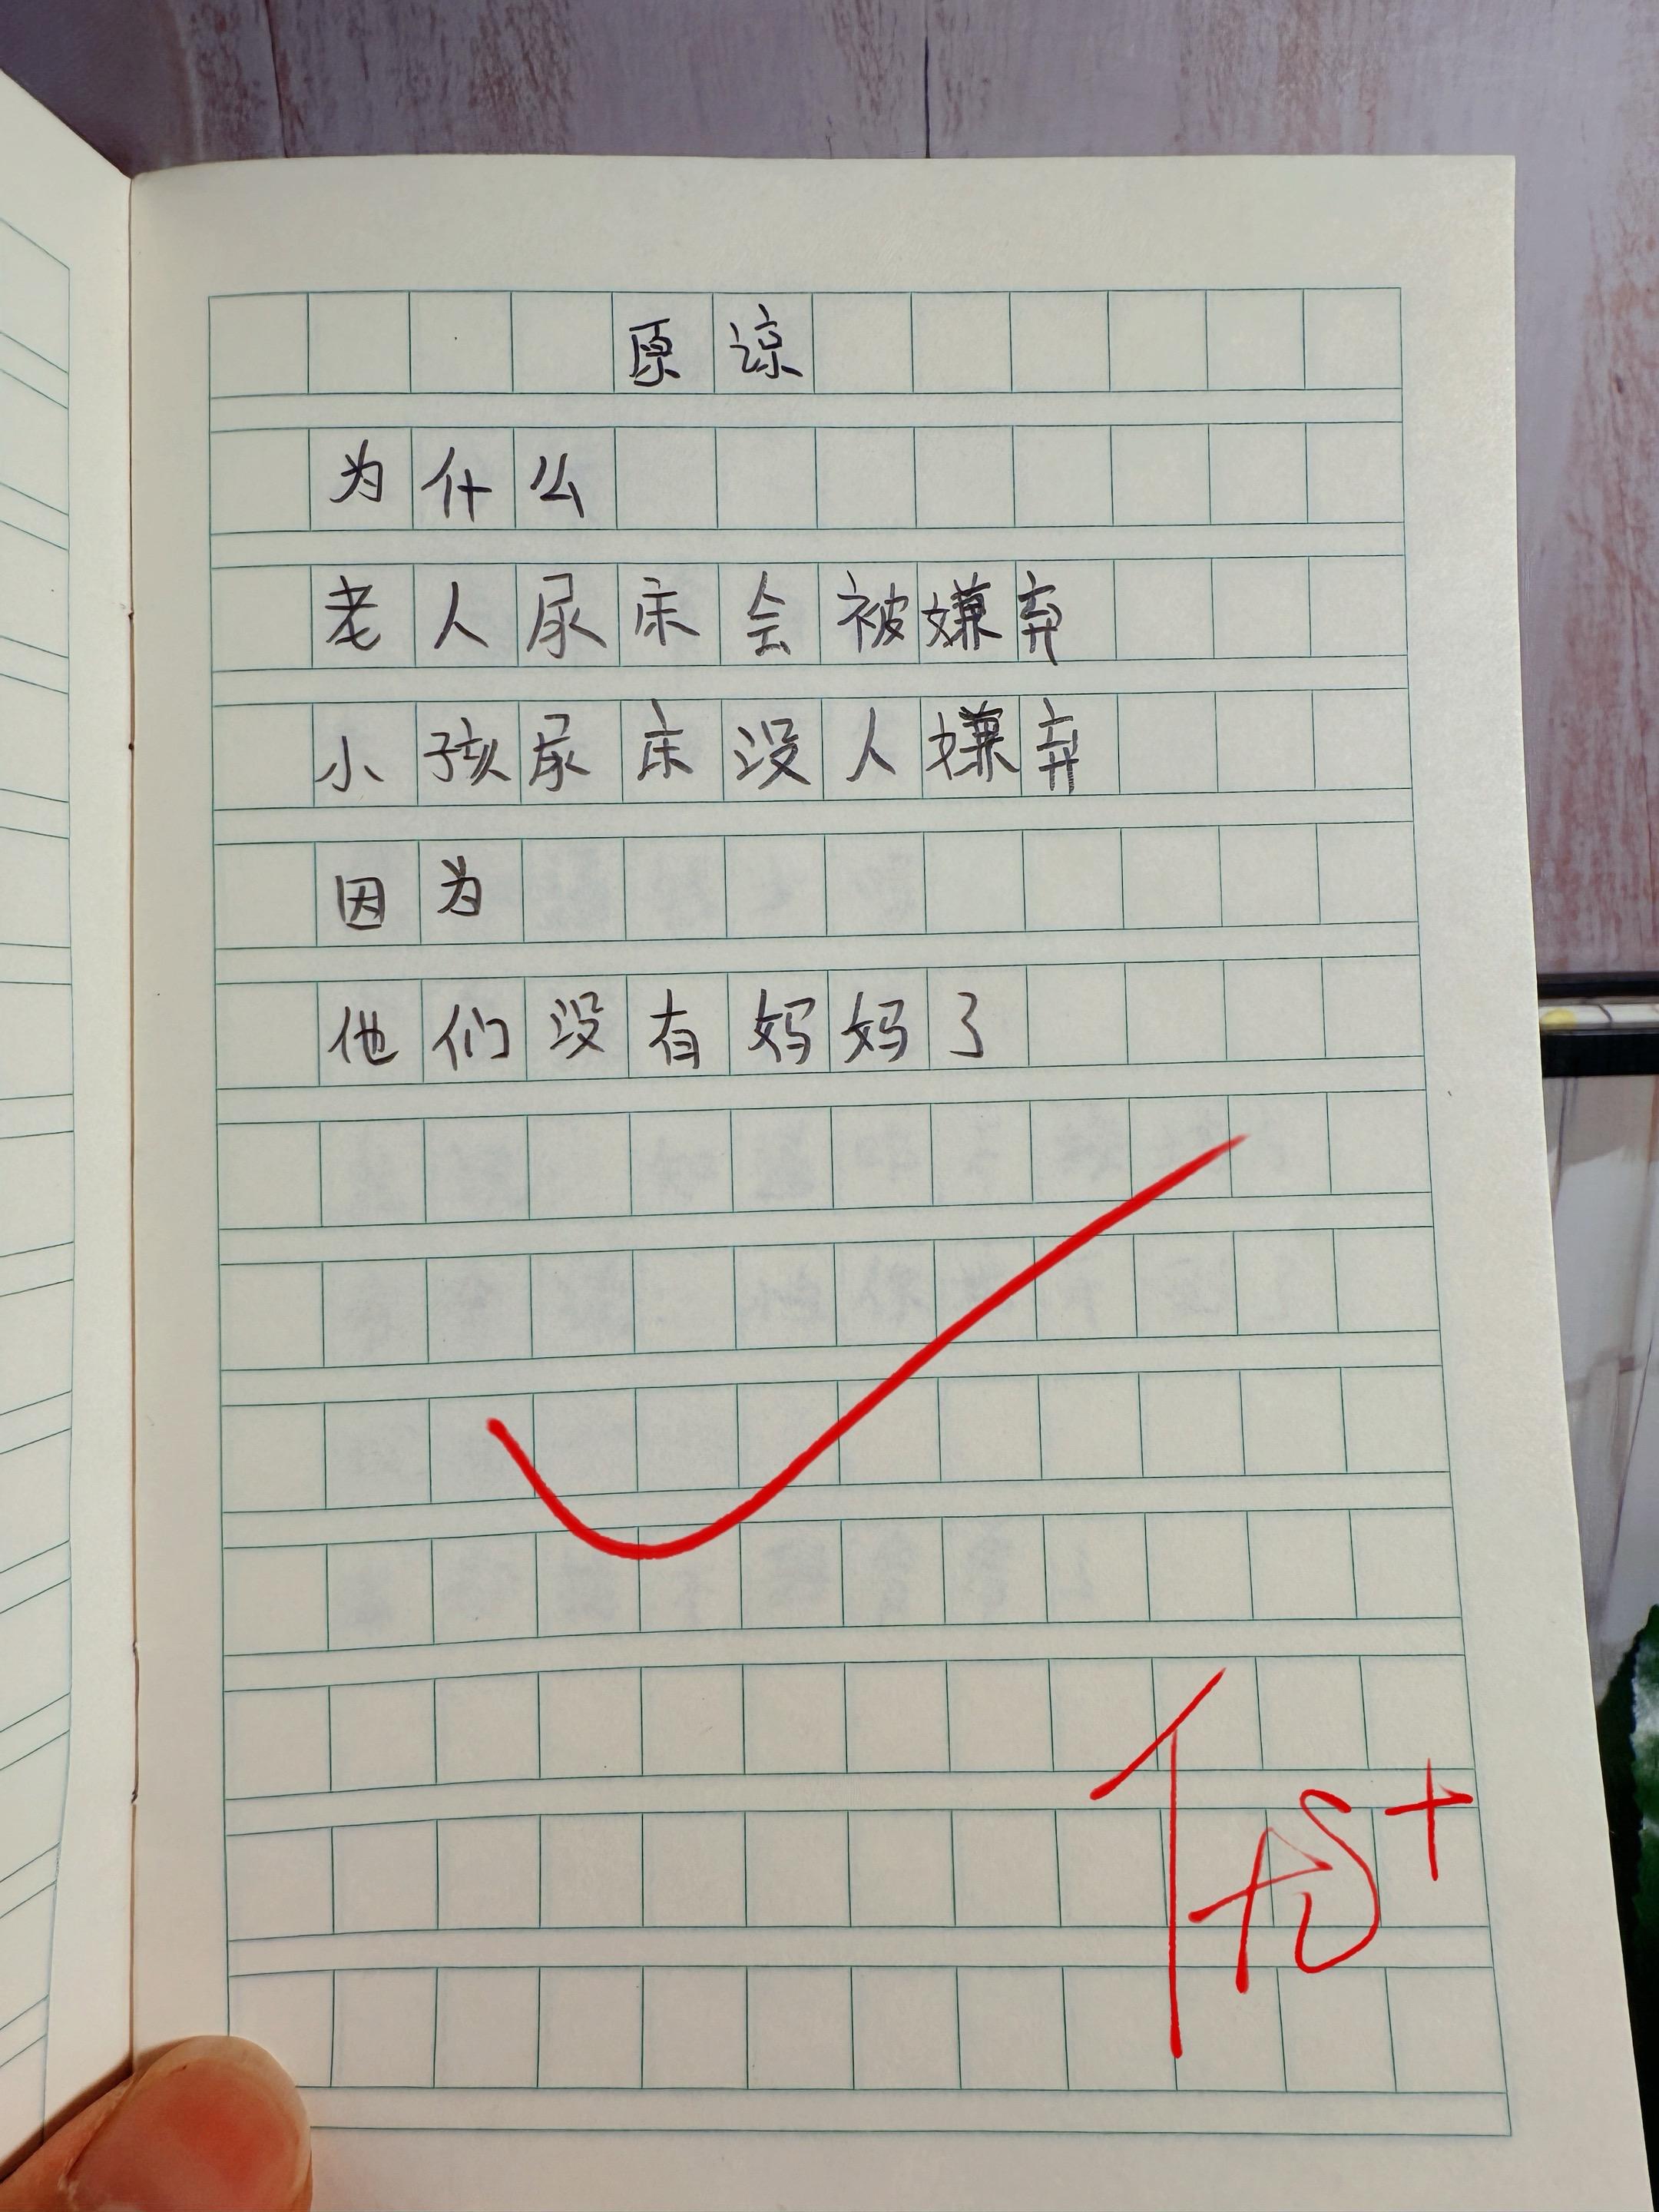 原谅
为什么
老人尿床会被嫌弃
小孩尿床没人嫌弃
因为
他们没有妈妈了
优+